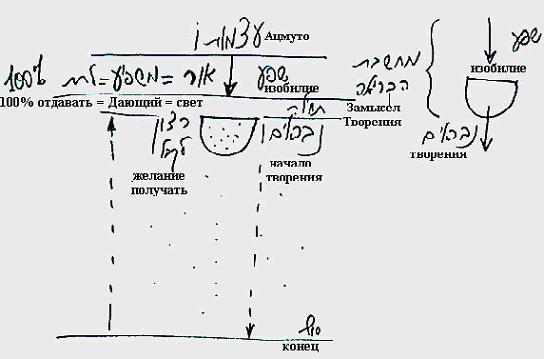 עצמותו Ацмуто
100% אור = משפיע = לתת שפע
изобилие
100% отдавать = Дающий = свет
מחשבת
הבריאה
Замысел
Творения
שפע
изобилие
נבראים
творения
רצון
לקבל
желание
получать
נבראים
начало
творения
סוף
конец